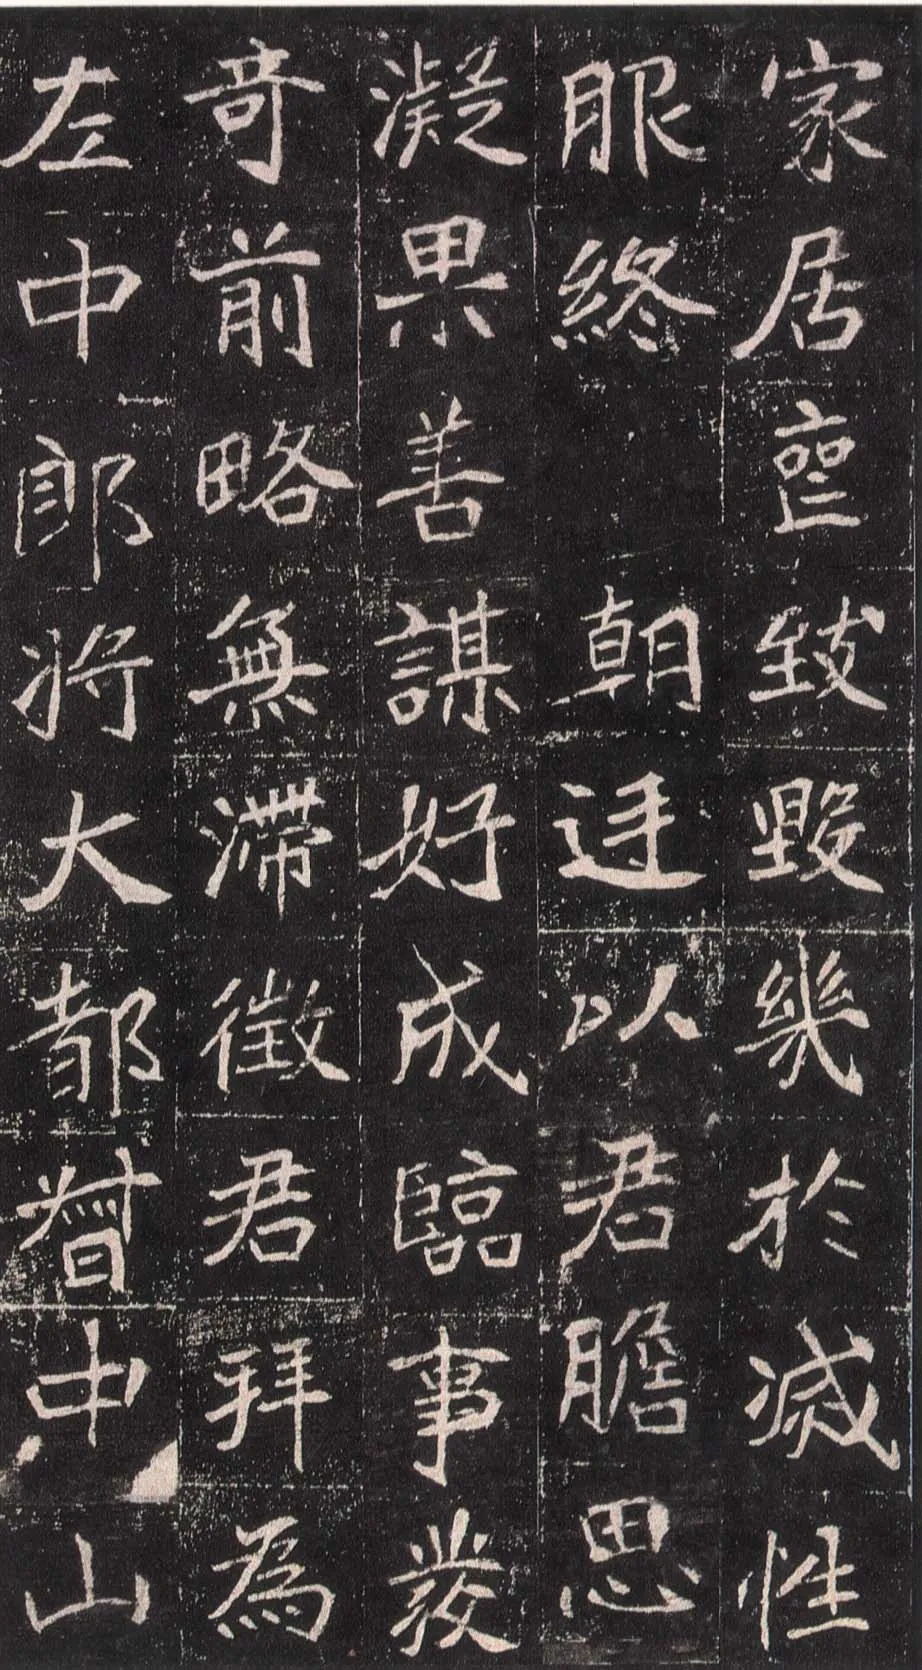 家居喪致毀幾於滅性
服終 朝廷以君膽思
凝果善謀好成臨事發
奇前略無滯徵君拜為
左中郎將大都督中山